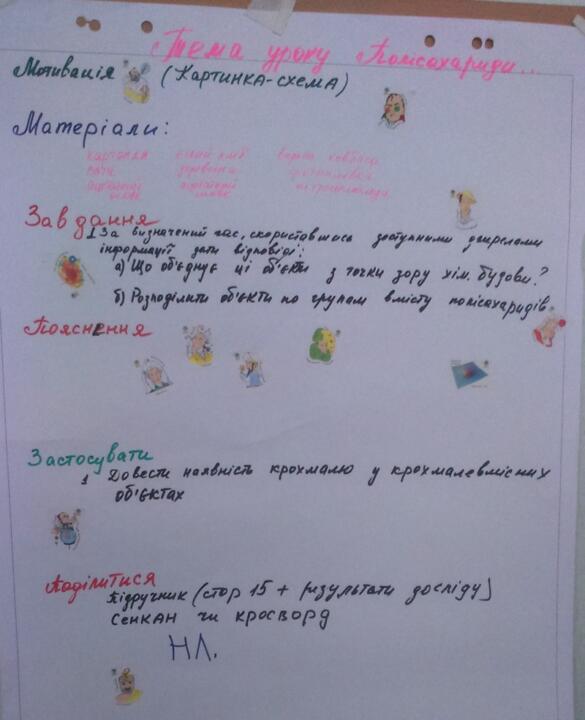 Тема уроку Полісахариди...
Мотивація (Картинка-схема)
Матеріали:
картопля білий хліб варена ковбаса
вата деревина фотоплівка
Завдання
1 За визначений час, скориставшись доступними джерелами
інформації дати відповіді:
а) Що об'єднує ці об'єкти з точки зору хім. будови?
б) Розподілити об'єкти по групам вмісту полісахаридів
Пояснення
Застосувати
1 Довести наявність крохмалю у крохмалевмісних
об'єктах
Поділитися
Підручник (стор 15 + результати досліду)
Сенкан чи кросворд
НЛ.